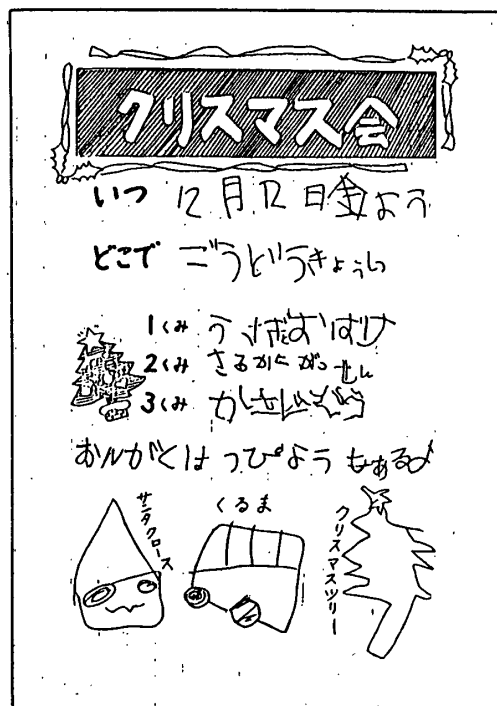 クリスマス会
いつ 12月12日金よう
どこで ごうどうきょうしつ
1くみ
2くみ さるかにがっせん
3くみ かさじぞう
おんがくはっぴようもある♪
サンタクロース
くるま
クリスマスツリー